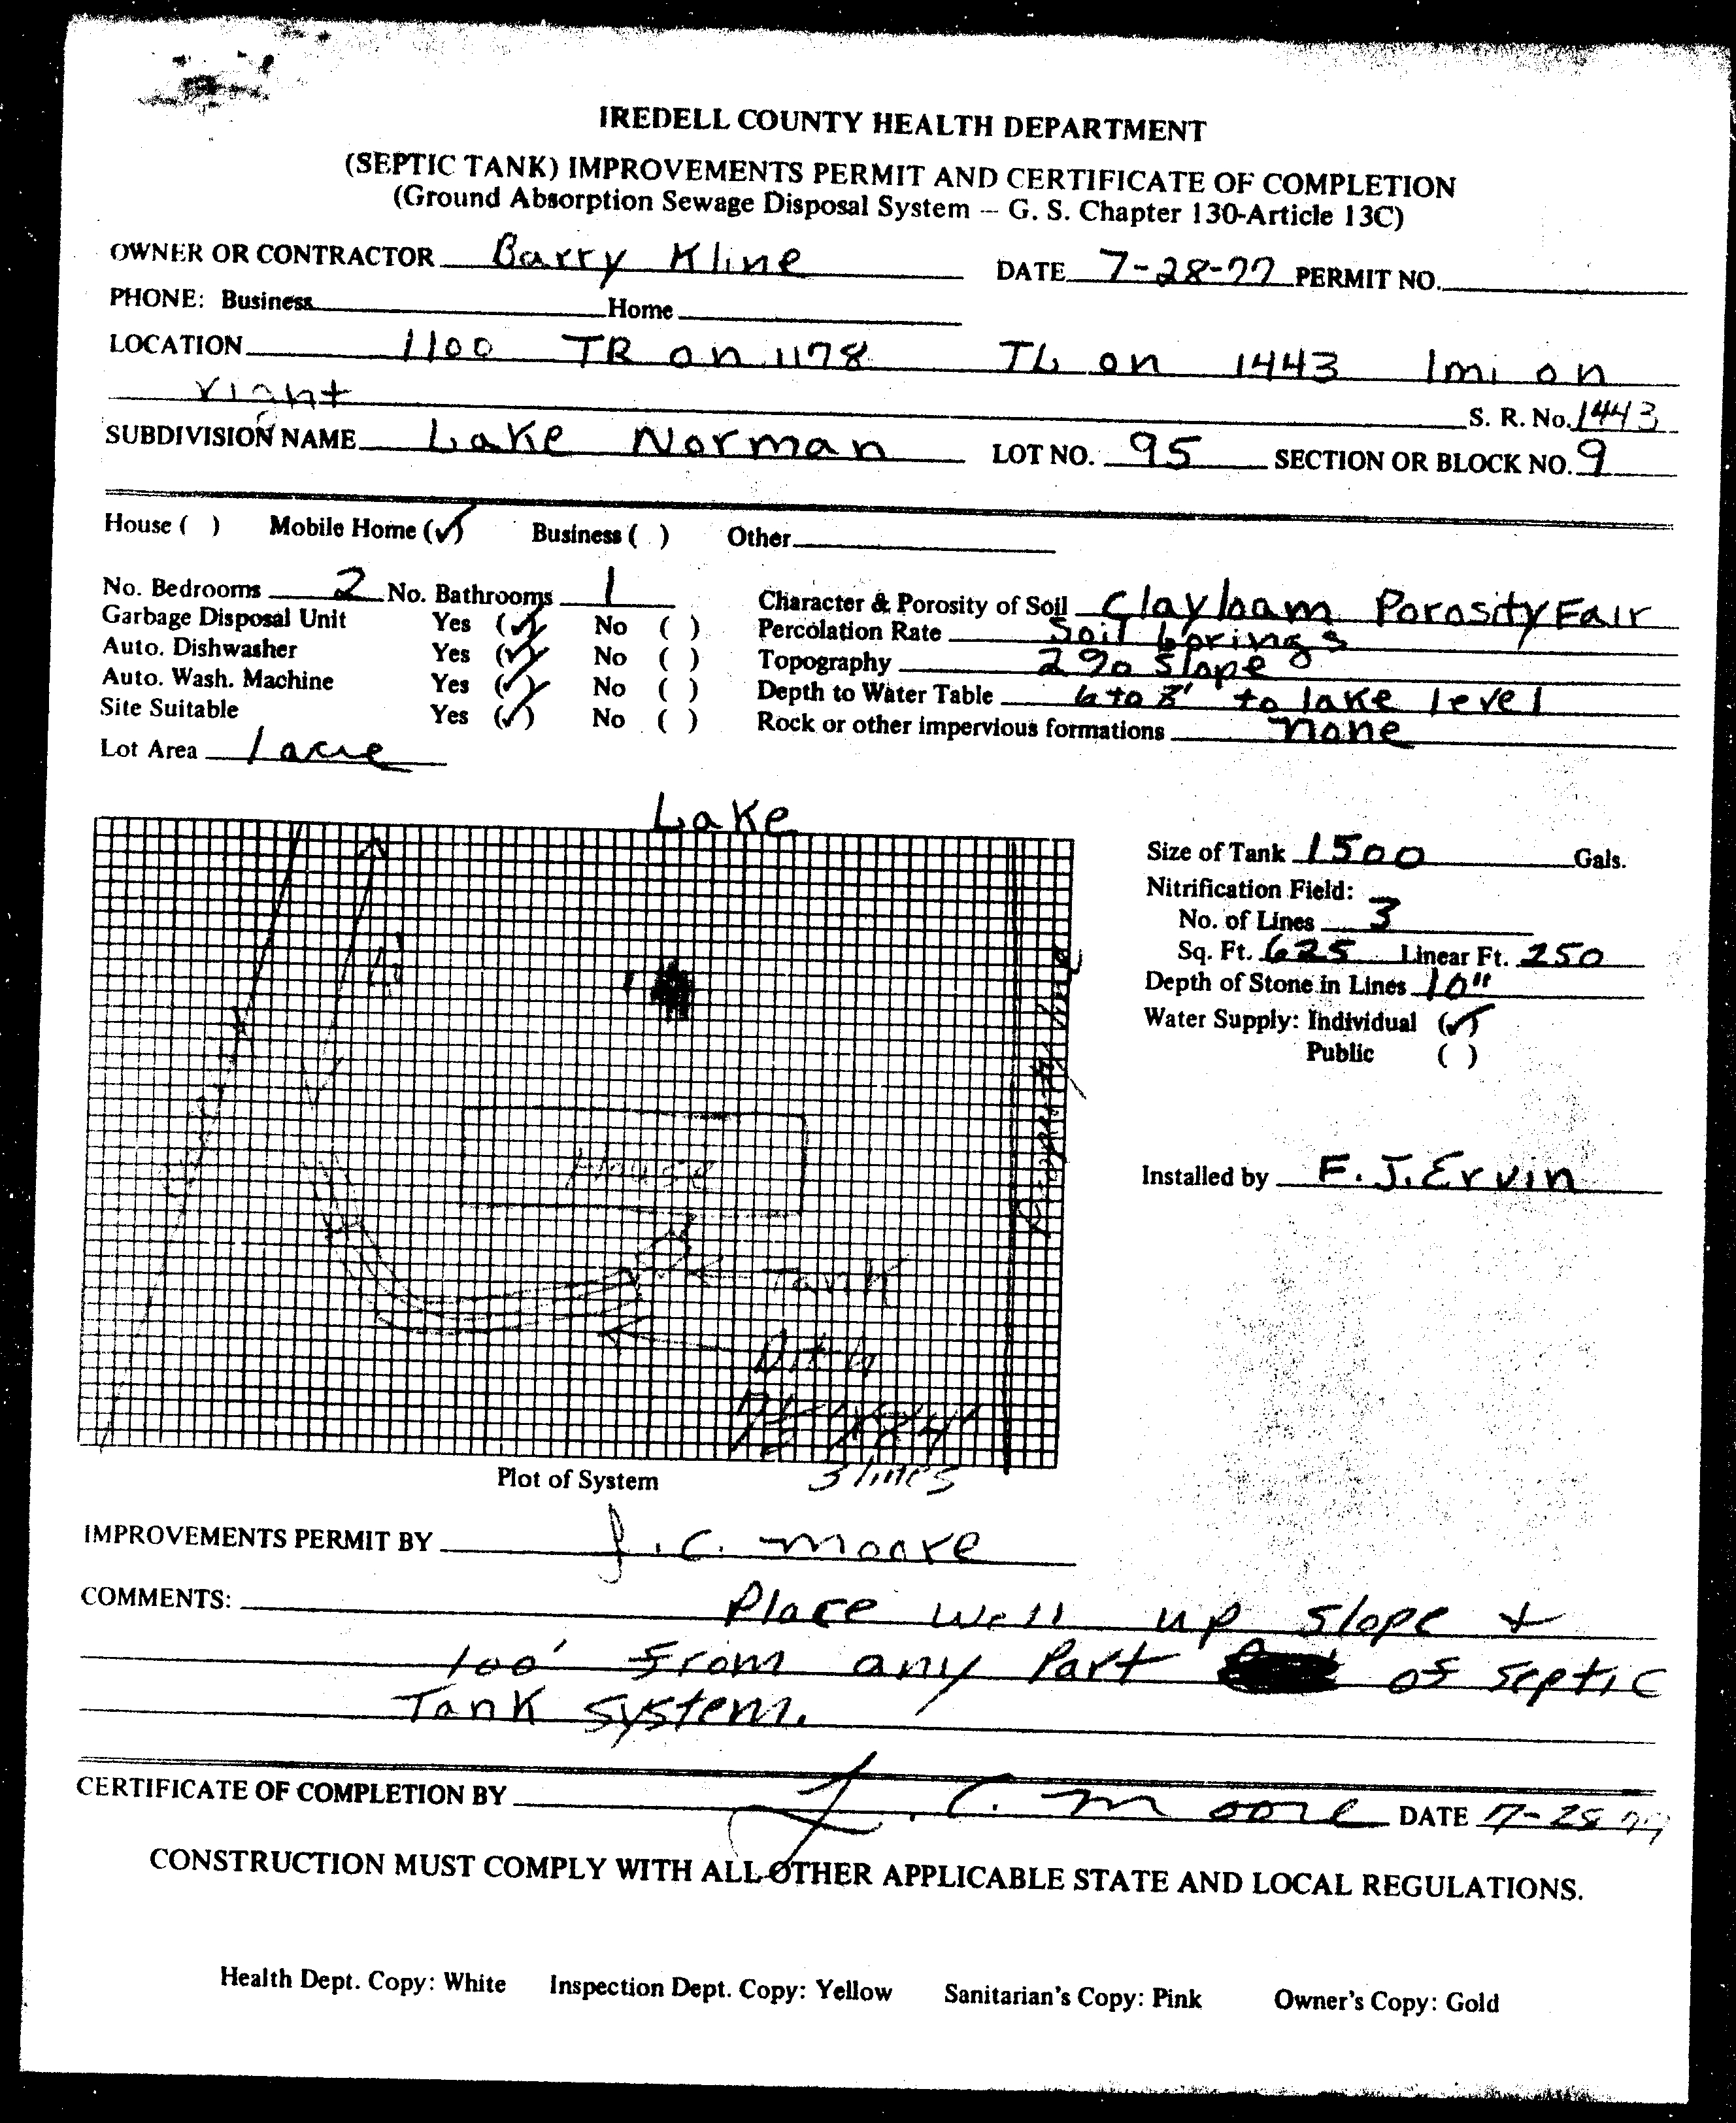 IREDELL COUNTY HEALTH DEPARTMENT
(SEPTIC TANK) IMPROVEMENTS PERMIT AND CERTIFICATE OF COMPLETION
(Ground Absorption Sewage Disposal System -- G. S. Chapter 130-Article 13C)
OWNER OR CONTRACTOR Barry Kline DATE 7-28-77 PERMIT NO.
PHONE: Business Home
LOCATION 1100 TR on 1178 TL on 1443 1mi on
right
S. R. No. 1443
SUBDIVISION NAME Lake Norman LOT NO. 95 SECTION OR BLOCK NO. 9
House ( ) Mobile Home (✓) Business ( ) Other
No. Bedrooms 2 No. Bathrooms 1 Character & Porosity of Soil Clayloam Porosity Fair
Garbage Disposal Unit Yes (✓) No ( ) Percolation Rate Soil borings
Auto. Dishwasher Yes (✓) No ( ) Topography 2% slope
Auto. Wash. Machine Yes (✓) No ( ) Depth to Water Table 6 to 8' to lake level
Site Suitable Yes (✓) No ( ) Rock or other impervious formations none
Lot Area 1 acre
Lake
Size of Tank 1500 Gals.
Nitrification Field:
No. of Lines 3
Sq. Ft. 625 Linear Ft. 250
Depth of Stone in Lines 10"
Water Supply: Individual (✓)
Public ( )
Property line
House
Installed by F. J. Ervin
Tank
3 lines
Plot of System
IMPROVEMENTS PERMIT BY J. C. Moore
COMMENTS: Place well up slope +
100' from any Part of septic
Tank system.
CERTIFICATE OF COMPLETION BY J. C. Moore DATE 7-28-77
CONSTRUCTION MUST COMPLY WITH ALL OTHER APPLICABLE STATE AND LOCAL REGULATIONS.
Health Dept. Copy: White Inspection Dept. Copy: Yellow Sanitarian's Copy: Pink Owner's Copy: Gold